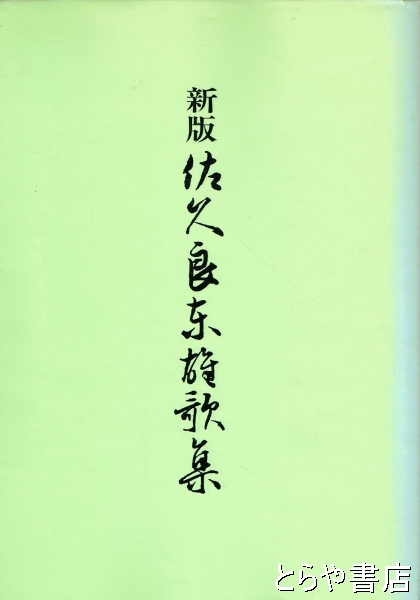 新版
佐久良东雄歌集
とらや書店